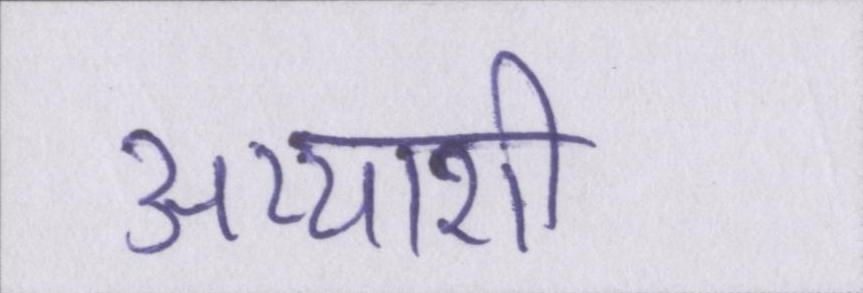 अय्याशी